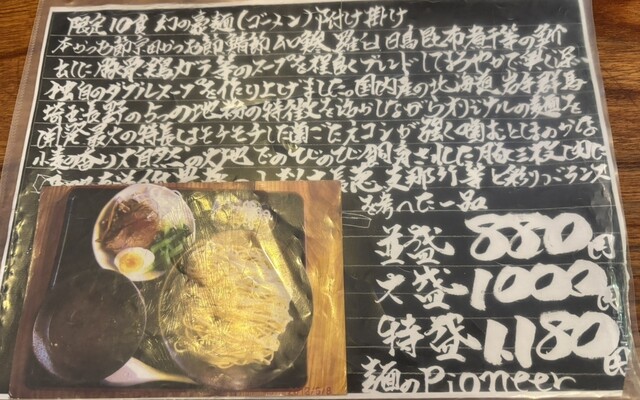 限定10食 幻の豪麺(ゴーメン)付け掛け
本かつお節宗田かつお節鯖節 羅臼 日高昆布煮干等の
だしに豚骨鶏ガラ等のスープを程良くブレンドしてまろやかで
独自のダブルスープを作り上げました。国内産の北海道岩手群馬
埼玉長野の5つの地粉の特徴を活かしながらオリジナルの麺を
開発 最大の特長はモチモチした歯ごたえコシが強く噛むとしまやかな
小麦の香り 大自然の大地でのびのび飼育された豚三枚肉に
支那竹 と彩りバランス
を考へた一品
並盛 880円
大盛 1000円
特盛 1,180円
麺のPioneer